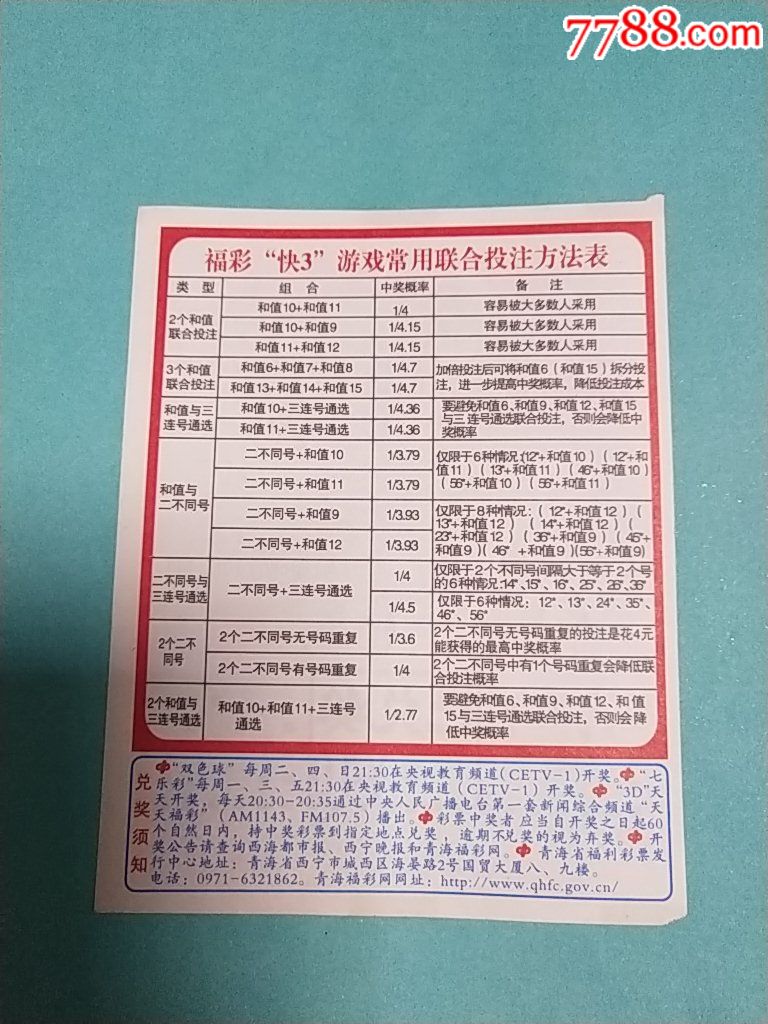 7788.com
福彩“快3”游戏常用联合投注方法表
类 型 组 合 中奖概率 备 注
2个和值
联合投注
和值10+和值11 1/4 容易被大多数人采用
和值10+和值9 1/4.15 容易被大多数人采用
和值11+和值12 1/4.15 容易被大多数人采用
3个和值
联合投注
和值6+和值7+和值8 1/4.7
和值13+和值14+和值15 1/4.7
加倍投注后可将和值6（和值15）拆分投
注，进一步提高中奖概率，降低投注成本
和值与三
连号通选
和值10+三连号通选 1/4.36
和值11+三连号通选 1/4.36
要避免和值6、和值9、和值12、和值15
与三连号通选联合投注，否则会降低中
奖概率
和值与
二不同号
二不同号+和值10 1/3.79
二不同号+和值11 1/3.79
仅限于6种情况:(12*+和值10）（12*+和
值11）（13*+和值11）（46*+和值10）
（56*+和值10）（56*+和值11）
二不同号+和值9 1/3.93
二不同号+和值12 1/3.93
仅限于8种情况：（12*+和值12）（
13*+和值12）（14*+和值12）（
23*+和值12）（36*+和值9）（45*+
和值9）（46*+和值9）（56*+和值9）
二不同号与
三连号通选
二不同号+三连号通选
1/4
仅限于2个不同号间隔大于等于2个号
的6种情况:14*、15*、16*、25*、26*、36*
1/4.5
仅限于6种情况：12*、13*、24*、35*、
46*、56*
2个二不
同号
2个二不同号无号码重复 1/3.6
2个二不同号无号码重复的投注是花4元
能获得的最高中奖概率
2个二不同号有号码重复 1/4
2个二不同号中有1个号码重复会降低联
合投注概率
2个和值与
三连号通选
和值10+和值11+三连号
通选
1/2.77
要避免和值6、和值9、和值12、和值
15与三连号通选联合投注，否则会降
低中奖概率
兑奖须知
“双色球”每周二、四、日21:30在央视教育频道(CETV-1)开奖。“七
乐彩”每周一、三、五21:30在央视教育频道（CETV-1）开奖。“3D”天
天开奖，每天20:30-20:35通过中央人民广播电台第一套新闻综合频道“天
天福彩”（AM1143、FM107.5）播出。彩票中奖者应当自开奖之日起60
个自然日内，持中奖彩票到指定地点兑奖，逾期不兑奖的视为弃奖。开
奖公告请查询西海都市报、西宁晚报和青海福彩网。青海省福利彩票发
行中心地址：青海省西宁市城西区海晏路2号国贸大厦八、九楼。
电话：0971-6321862。青海福彩网网址：http://www.qhfc.gov.cn/